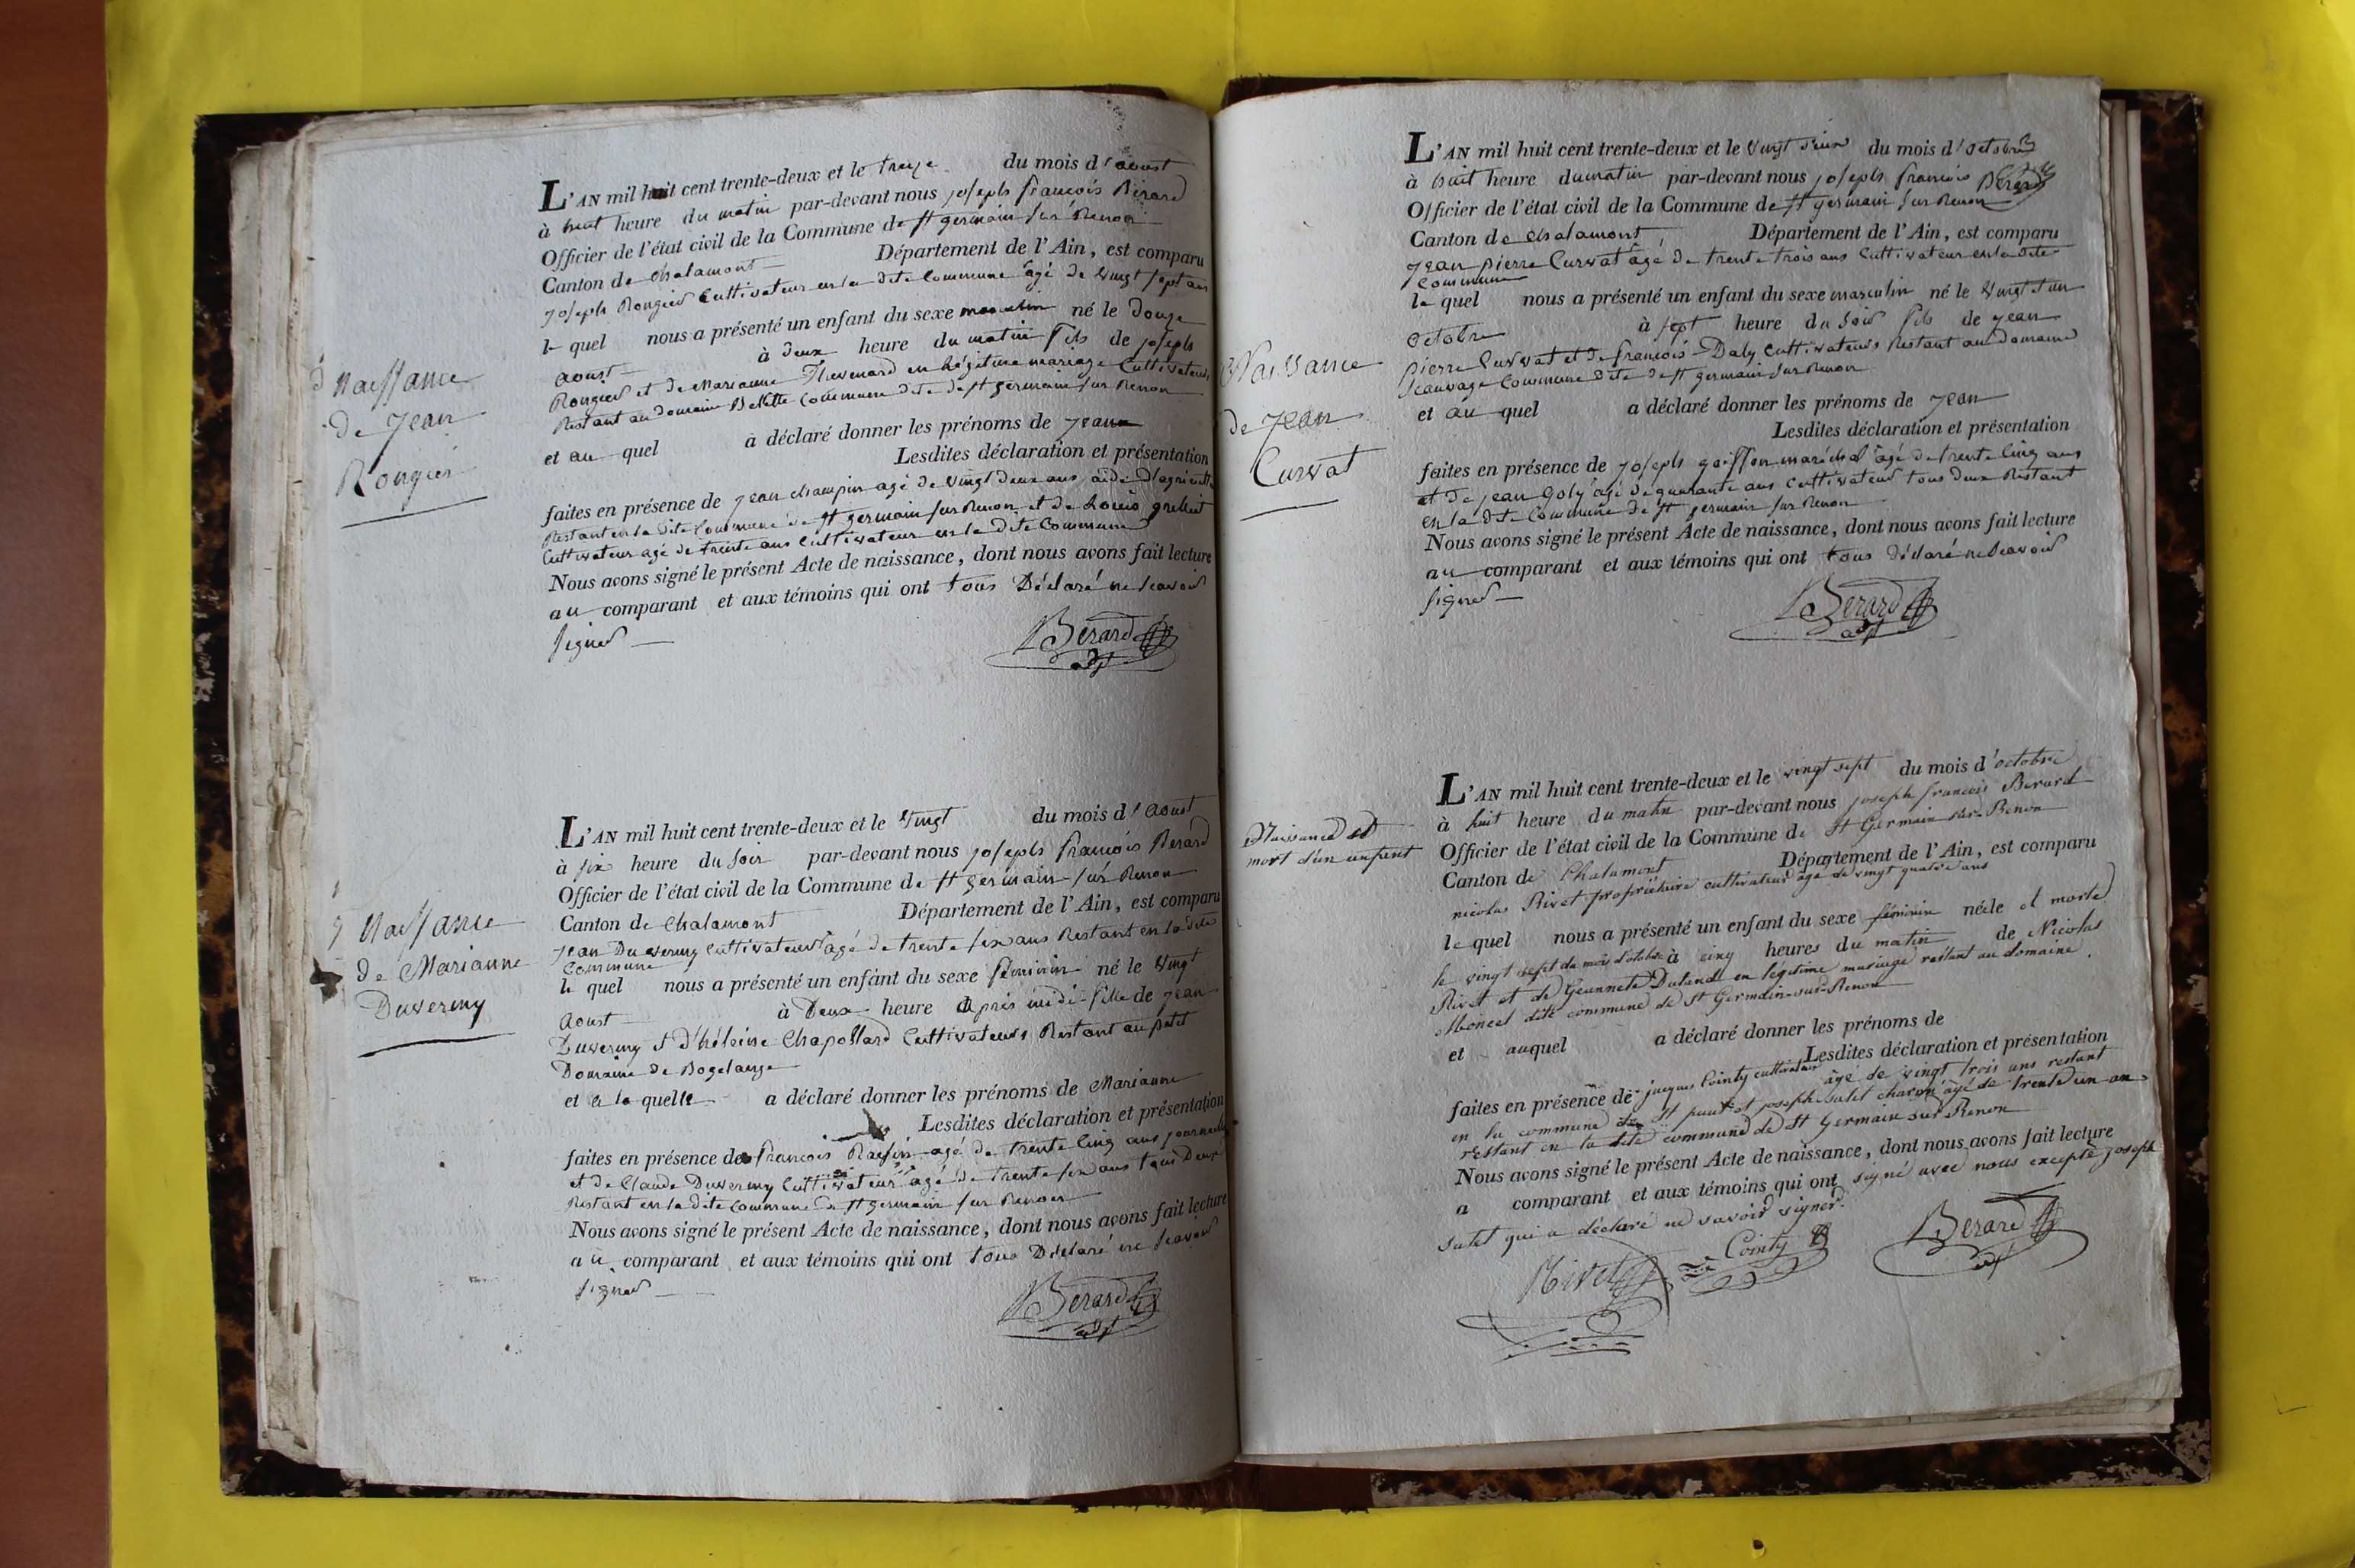 Naissance
de Jean
Rongier
L'AN mil huit cent trente-deux et le treize du mois d'aoust
à huit heure du matin par-devant nous joseph françois Bérard
Officier de l'état civil de la Commune de st germain sur Renon
Canton de Chalamont Département de l'Ain, est comparu
joseph Rongier Cultivateur en la dite Commune agé de vingt sept ans
le quel nous a présenté un enfant du sexe masculin né le douze
aoust à deux heure du matin fils de joseph
Rongier et de Marianne Thevenard en Légitime mariage Cultivateurs
Restant au domaine Commune dite de st germain sur Renon
et au quel a déclaré donner les prénoms de Jean
Lesdites déclaration et présentation
faites en présence de jean champin agé de vingt deux ans aide
Restant en la dite Commune de st germain sur Renon et de Louis
Cultivateur agé de trente ans Cultivateur en la dite Commune
Nous avons signé le présent Acte de naissance, dont nous avons fait lecture
au comparant et aux témoins qui ont tous Déclaré ne scavoir
signer
Bérard
Naissance
de Marianne
Duverny
L'AN mil huit cent trente-deux et le vingt du mois d'aoust
à six heure du soir par-devant nous joseph françois Bérard
Officier de l'état civil de la Commune de st germain sur Renon
Canton de Chalamont Département de l'Ain, est comparu
jean Duverny Cultivateur agé de trente six ans Restant en la dite
Commune
le quel nous a présenté un enfant du sexe féminin né le vingt
aoust à Deux heure après midi fille de jean
Duverny et d'héleine Chapollard Cultivateurs Restant au petit
Domaine de
et a la quelle a déclaré donner les prénoms de Marianne
Lesdites déclaration et présentation
faites en présence de françois agé de trente cinq ans
et de Claude Duverny Cultivateur agé de trente six ans tous Deux
Restant en la dite Commune de st germain sur Renon
Nous avons signé le présent Acte de naissance, dont nous avons fait lecture
au comparant et aux témoins qui ont tous Déclaré ne scavoir
signer
Bérard
Naissance
de Jean
Curvat
L'AN mil huit cent trente-deux et le vingt deux du mois d'octobre
à huit heure du matin par-devant nous joseph françois Bérard
Officier de l'état civil de la Commune de st germain sur Renon
Canton de Chalamont Département de l'Ain, est comparu
jean pierre Curvat agé de trente trois ans Cultivateur en la dite
Commune
le quel nous a présenté un enfant du sexe masculin né le vingt et un
octobre à sept heure du soir fils de jean
pierre Curvat et de françois Daly Cultivateurs Restant au domaine
Commune dite de st germain sur Renon
et au quel a déclaré donner les prénoms de jean
Lesdites déclaration et présentation
faites en présence de joseph maréchal agé de trente cinq ans
et de jean Goly agé de quarante ans cultivateur tous deux Restant
en la dite Commune de st germain sur Renon
Nous avons signé le présent Acte de naissance, dont nous avons fait lecture
au comparant et aux témoins qui ont tous déclaré ne scavoir
signer
Bérard
Naissance et
mort d'un enfant
L'AN mil huit cent trente-deux et le vingt sept du mois d'octobre
à huit heure du matin par-devant nous joseph francois Berard
Officier de l'état civil de la Commune de St Germain sur Renon
Canton de Chalamont Département de l'Ain, est comparu
nicolas Rivet propriétaire cultivateur âgé de vingt quatre ans
le quel nous a présenté un enfant du sexe féminin née le et morte
le vingt sept du mois d'octobre à cinq heures du matin de Nicolas
Rivet et de Geannete Duland en légitime mariage restant au domaine
Moncel dite commune de St Germain-sur-Renon
et auquel a déclaré donner les prénoms de
Lesdites déclaration et présentation
faites en présence de jacques Cointy cultivateur âgé de vingt trois ans restant
en la commune de St paul et joseph Sulet charon âgé de trente un an
restant en la dite commune de St Germain sur Renon
Nous avons signé le présent Acte de naissance, dont nous avons fait lecture
a comparant et aux témoins qui ont signé avec nous excepté joseph
Sulet qui a déclaré ne savoir signer.
Rivet Cointy Bérard